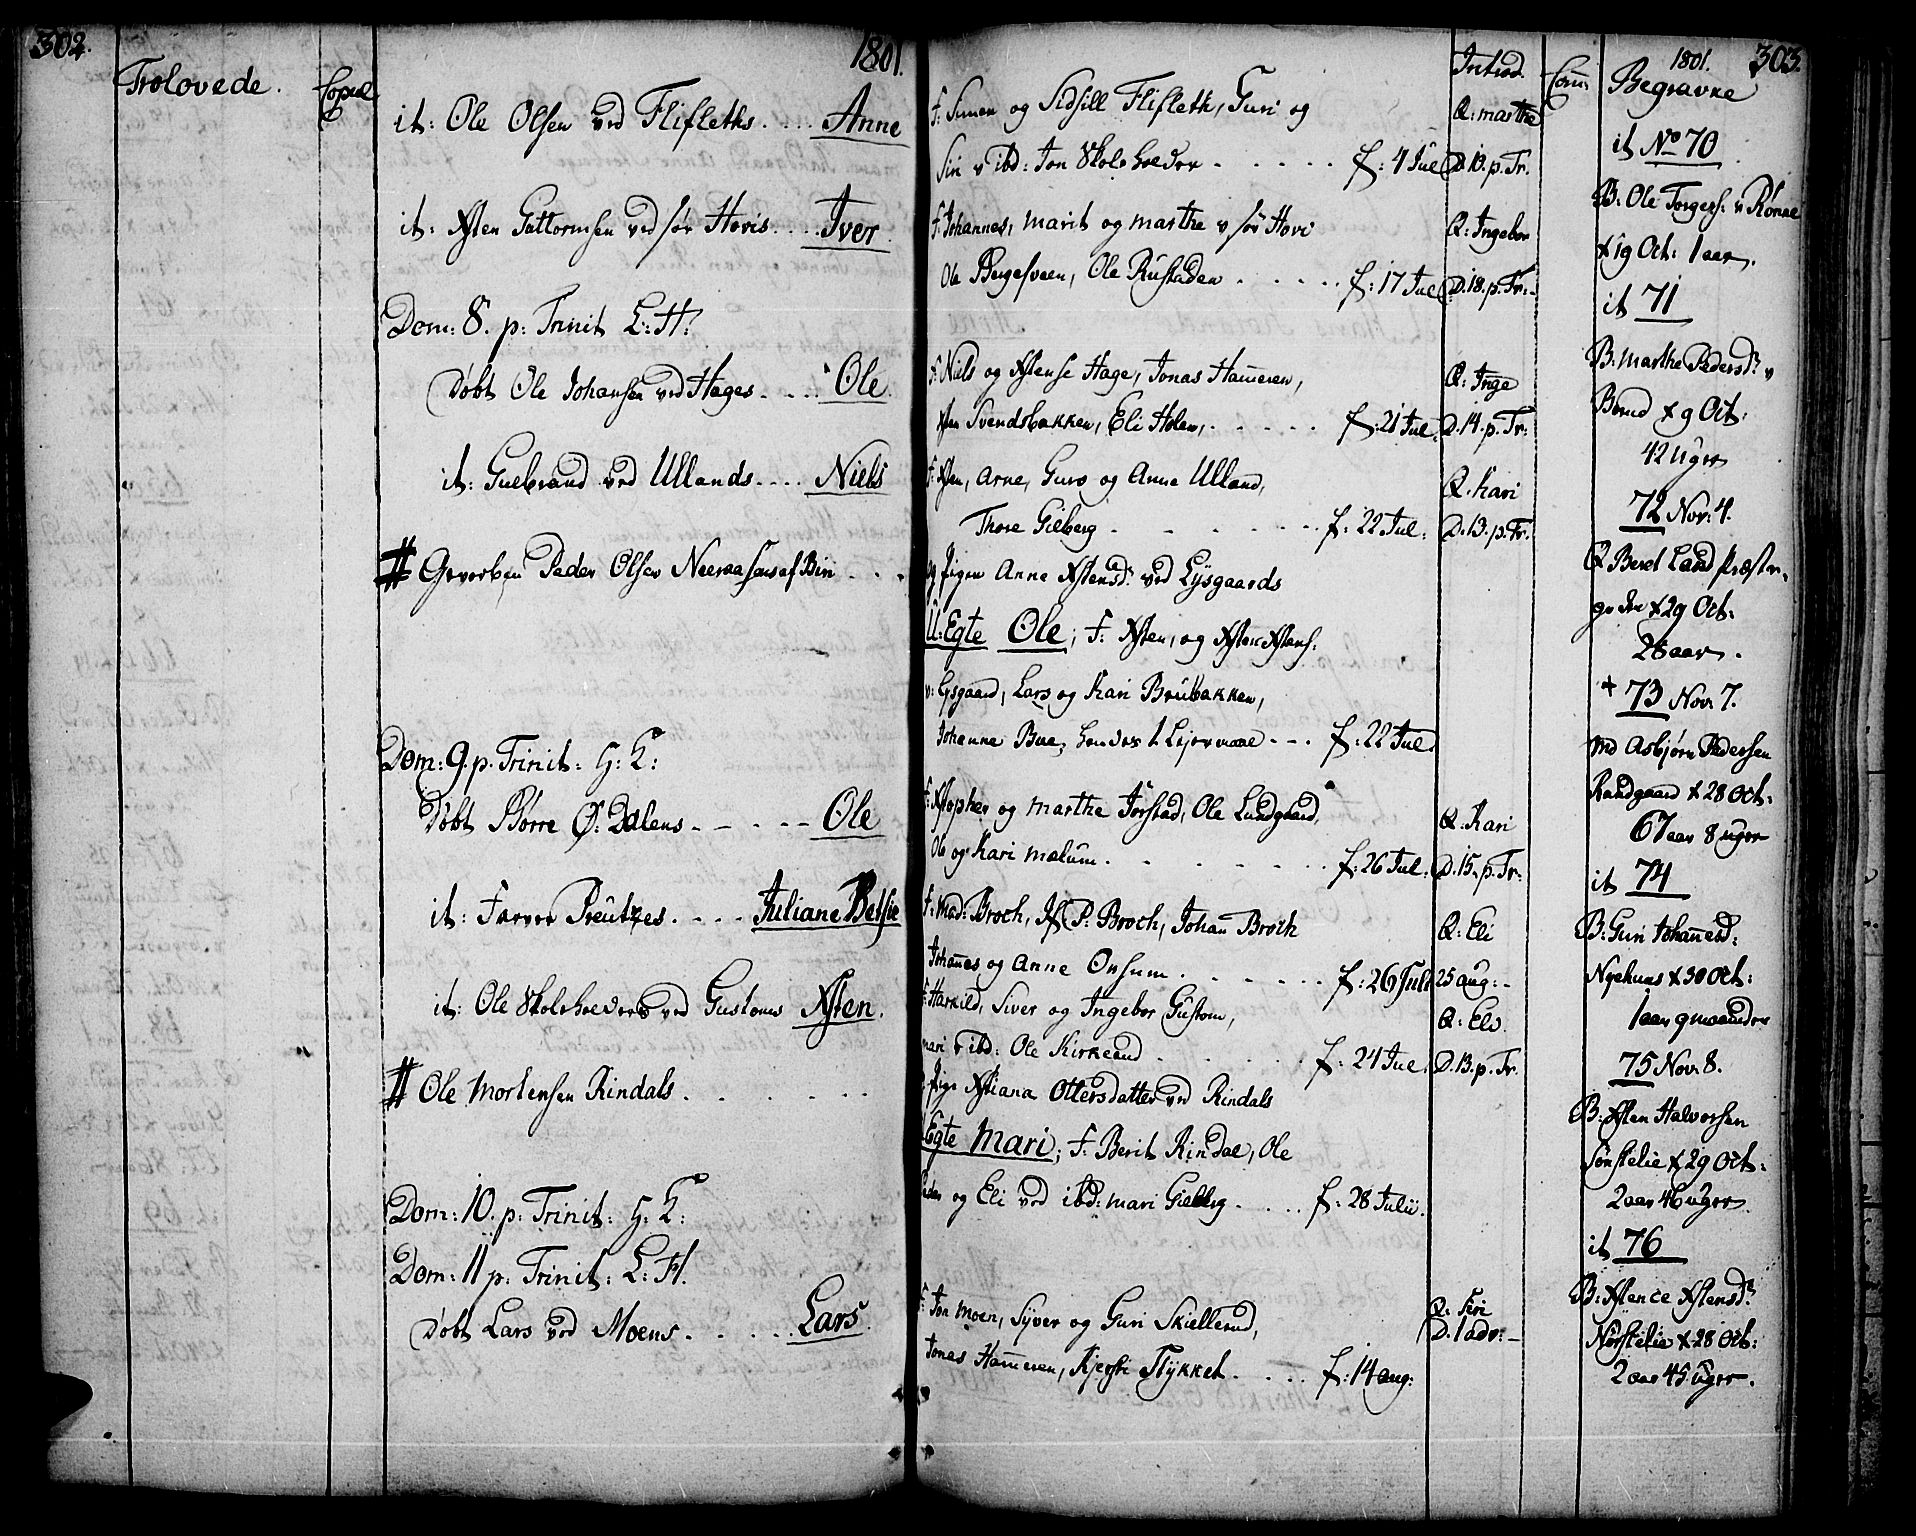 302.
Trolovede.
Copul
1801.
it: Ole Olsen ved Flifleths. . . . Anne
it: Asten Guttormsen ved sør Hovis. . . . Iver
Dom: 8. p: Trinit L: H:
Døbt Ole Johansen ved Hages. . . . Ole.
it: Gulbrand ved Ullands. . . . Niels
# Peder Olsen af Biri . . .
Dom: 9. p. Trinit: H: K:
Døbt Børre Ø: Dalens - - - - Ole
it: Farver Preutzes. . . . Juliane Betsie
it: Ole Skoleholders ved Gustoms Asten.
# Ole Mortensen Rindals. . . . . .
Dom: 10. p: Trinit: H: K:
Dom: 11 p: Trinit: L: H.
Døbt Lars ved Moens. . . . . Lars.
F: Simen og Sidsill Flifleth, Guri og
Siri v ibd: Jon Skoleholder . . . . . f: 4 Jul
F: Johannes, Marit og Marthe v sør Hovi
Ole Bergesveen, Ole Rustaden . . . . . f: 17 Jul
F: Niels og Astense Hage, Jonas Hammeren,
Asten Svendsbakken, Eli Holen, . . . . . f: 21 Jul.
F: Asten, Arne, Guro og Anne Ulland,
Thore Gilberg . . . . . . f: 22 Jul:
og Pigen Anne Astensd: ved Lysgaards
U: Egte Ole; F: Asten, og Asten Astens:
v: Lysgaard, Lars og Kari Brubakken,
Johanne Bue, hendes 1 Leyermaal - - - f: 22 Jul
F: Kstopher og Marthe Jørstad, Ole Lundgaard,
Ole og Kari Mælum. . . . . . . f: 26 Jul:
F: Mad: Broch, Jf P: Broch, Johan Broch
Johannes og Anne Onsum. . . . . . f: 26 Juli
F: Harkild, Siver og Ingebor Gustom,
Mari v ibd: Ole Kirkerud . . . . . f: 24 Jul.
Pige Astiana Ottersdatter ved Rindals
Egte Mari; F: Berit Rindal, Ole
Peder og Eli ved ibd: Mari Gilberg. . . . . f: 28 Julii.
F: Jon Moen, Syver og Guri Skiellerud,
Jonas Hammeren, Kjersti Stykket . . . . . f: 14 aug:
Introd.
Q: Marthe
D. 13. p. Tr.
Q: Ingebor
D. 18. p. Tr: -
Q: Inge
D. 14. p. Tr:
Q. Kari
D. 13. p. Tr.
Q. Kari
D. 15. p. Tr:
Q: Eli
25 aug: -
Q: Els.
D. 13. p. Tr.
Q: Siri
D. 1 adv: -
Com:
1801. 303.
Begravne
it No 70
B: Ole Torgers: v Rønne
x 19 Oct: 1 aar.
it 71
B. Marthe Pedersd: v
x 9 Oct:
42 Uger
72 Nov: 4.
Q Beret Land Præste-
x 29 Oct:
28 aar.
+ 73 Nov: 7.
Md Asbjørn Pedersen
Randgaard x 28 Oct:
67 aar 8 uger
it 74
B: Guri Johannesd:
Nyehuus x 30 Oct:
1 aar 9 maander
75 Nov: 8.
B: Asten Halvorsen
Sørstelie x 29 Oct:
2 aar 46 uger
it 76
B: Astence Astensd:
Nørstelie x 28 Oct:
2 aar 45 Uger.